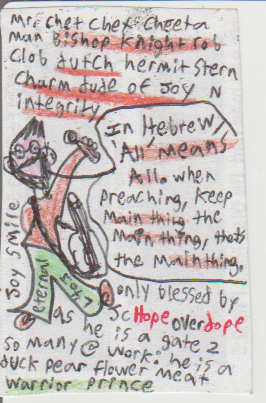 Mr. Chet Chex Cheeta
man Bishop Knight rob
Clob dutch hermit Stern
Charm dude of Joy N
integrity
In Hebrew,
All means
All. when
preaching, keep
Main thing the
Main thing, thats
the main thing.
Joy Smile
eternal
only blessed by
Hope over dope
as he is a gate 2
so many @ work. he is a
duck pear flower meat
warrior prince